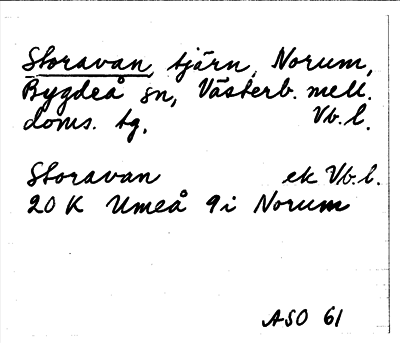 Storavan, tjärn, Norum,
Bygdeå sn, Västerb. mell.
doms. tg. Vb. l.
Storavan ek Vb. l.
20 K Umeå 9 i Norum
ASO 61